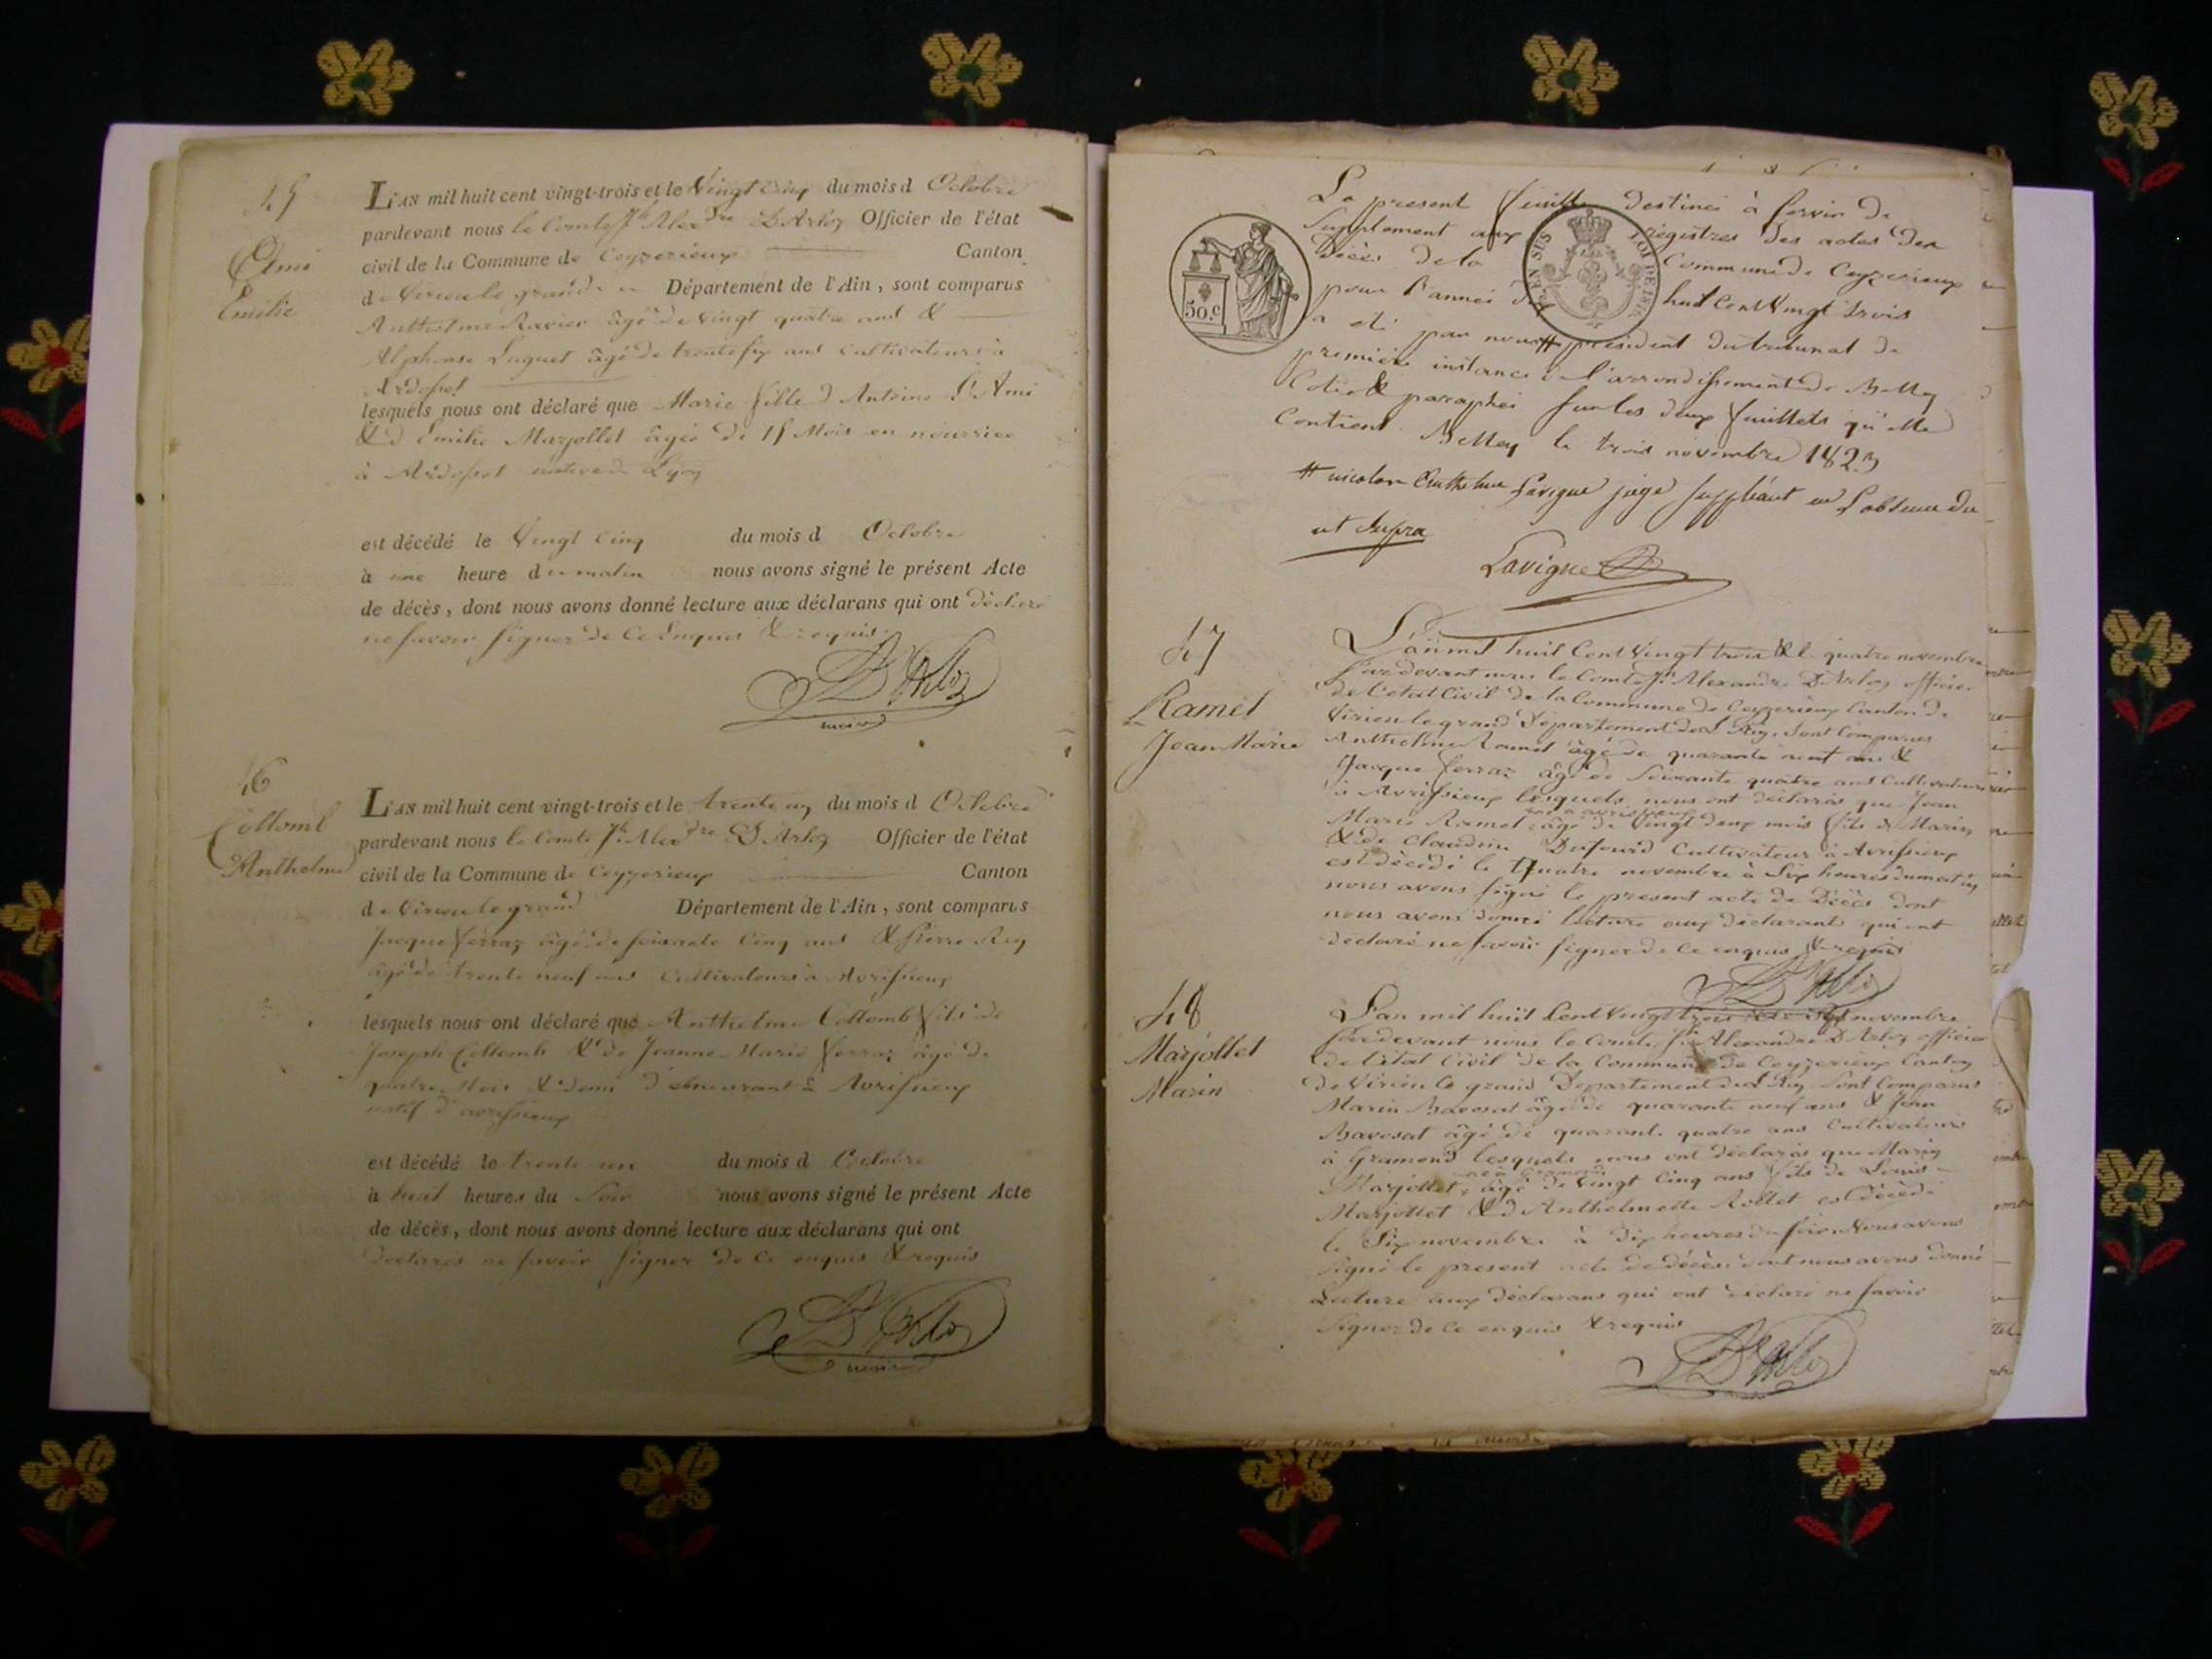 45
Ami
Emilie
L'AN mil huit cent vingt-trois et le Vingt Cinq du mois d Octobre
pardevant nous le Comte Jh Alexdre D'Arloz Officier de l'état
civil de la Commune de Ceyzerieux Canton
de Virieu le grand Département de l'Ain, sont comparus
Anthelme Ravier âgé de Vingt quatre ans &
Alphonse Luquet âgé de trente six ans Cultivateurs à
Ardosset
lesquels nous ont déclaré que Marie fille d Antoine L'Ami
& d Emilie Marjollet âgée de 15 Mois en nourrice
à Ardosset native de Lyon
est décédé le Vingt Cinq du mois d Octobre
à une heure du matin nous avons signé le présent Acte
de décès, dont nous avons donné lecture aux déclarans qui ont déclaré
ne savoir signer de Ce Enquis & requis
D'Arloz
maire
46
Collomb
Anthelme
L'AN mil huit cent vingt-trois et le trente un du mois d Octobre
pardevant nous le Comte Jh Alexdre D'Arloz Officier de l'état
civil de la Commune de Ceyzerieux Canton
de Virieu le grand Département de l'Ain, sont comparus
Jacque Ferraz âgé de soixante Cinq ans & Pierre Rey
âgé de trente neuf ans Cultivateurs à Avrissieux
lesquels nous ont déclaré que Anthelme Collomb fils de
Joseph Collomb & de Jeanne Marie Ferraz âgé de
quatre Mois & demi demeurant à Avrissieux
natif d'avrissieux
est décédé le trente un du mois d Octobre
à huit heures du Soir nous avons signé le présent Acte
de décès, dont nous avons donné lecture aux déclarans qui ont
déclarés ne savoir signer de Ce enquis & requis
D'Arloz
maire
La present feuille destinée à servir de
Supplement aux registres des actes des
Décès de la Commune de Ceyzerieux
pour l'année huit Cent Vingt trois
a été par nous # president du tribunal de
premiere instance de l'arrondissement de Belley
Cotée & paraphée sur les deux feuillets qu'elle
Contient Belley le trois novembre 1823
# nicolas Anthelme Lavigne juge suppléant en L'absence du
ut supra
Lavigne
50.c
LOI DE 1816
47
Ramel
Jean Marie
L'an mil huit Cent Vingt trois & le quatre novembre
Pardevant nous le Comte Jh Alexandre D'Arloz officier
de l'etat Civil de la Commune de Ceyzerieux Canton de
Virieu le grand Departement de l'Ain, sont Comparus
Anthelme Ramel âgé de quarante neuf ans &
Jacque Ferraz âgé de Soixante quatre ans Cultivateurs
à Avrissieux lesquels nous ont déclarés que Jean
né à avrissieux
Marie Ramel âgé de Vingt deux mois fils de Marin
& de Claudine Dufourd Cultivateur à Avrissieux
est décédé le quatre novembre à Six heures du matin
nous avons signé le present acte de Décès dont
nous avons donné lecture aux déclarants qui ont
déclaré ne savoir signer de Ce enquis & requis
D'Arloz
48
Marjollet
Marin
L'an mil huit Cent Vingt trois & le novembre
Pardevant nous le Comte Jh Alexandre D'Arloz officier
de l'état Civil de la Commune de Ceyzerieux Canton
de Virieu le grand Departement de l'Ain sont Comparus
Marin Bavosat âgé de quarante neuf ans & Jean
Bavosat âgé de quarante quatre ans Cultivateurs
à Gramond lesquels nous ont déclarés que Marin
né à Gramond
Marjollet, âgé de Vingt Cinq ans fils de Louis
Marjollet & d Anthelmette Rollet est décédé
le Six novembre à dix heures du soir Nous avons
signé le present acte de décès dont nous avons donné
Lecture aux déclarans qui ont déclaré ne savoir
signer de Ce enquis & requis
D'Arloz